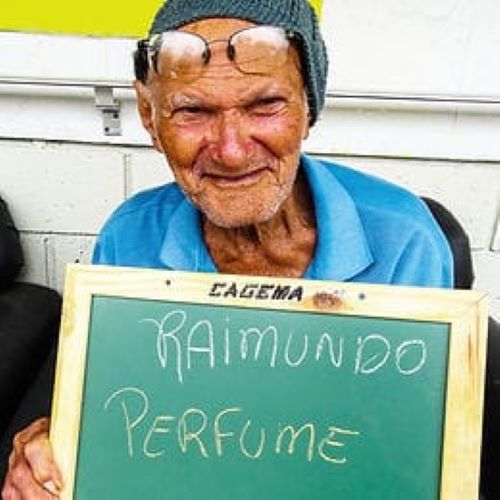 CAGEMA
RAIMUNDO
PERFUME